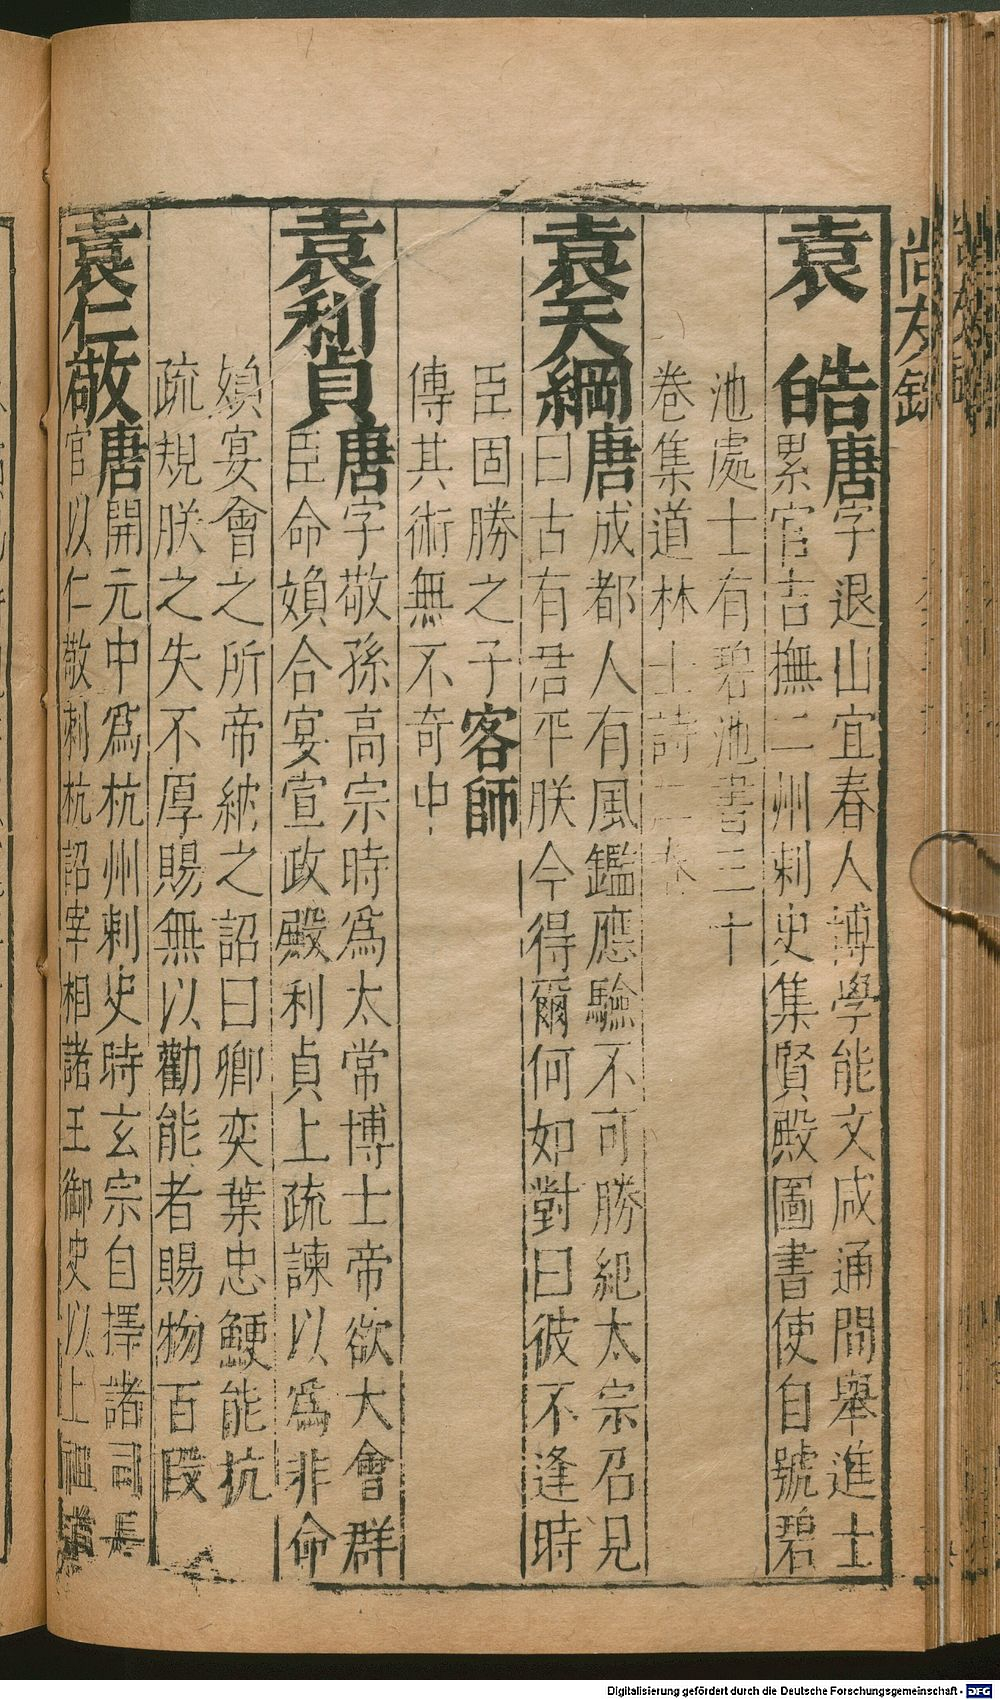 尚友錄
袁皓唐字退山宜春人博學能文咸通間舉進士
累官吉撫二州刺史集賢殿圖書使自號碧
池處士有碧池書三十
卷集道林士詩二卷
袁天綱唐成都人有風鑑應驗不可勝紀太宗召見
曰古有君平朕今得爾何如對曰彼不逢時
臣固勝之子客師
傳其術無不奇中
袁利貞唐字敬孫高宗時為太常博士帝欲大會群
臣命媍合宴宣政殿利貞上疏諫以為非命
媍宴會之所帝納之詔曰卿奕葉忠鯁能抗
疏規朕之失不厚賜無以勸能者賜物百段
袁仁敬唐開元中為杭州刺史時玄宗自擇諸司長
官以仁敬刺杭詔宰相諸王御史以上祖道
Digitalisierung gefördert durch die Deutsche Forschungsgemeinschaft - DFG